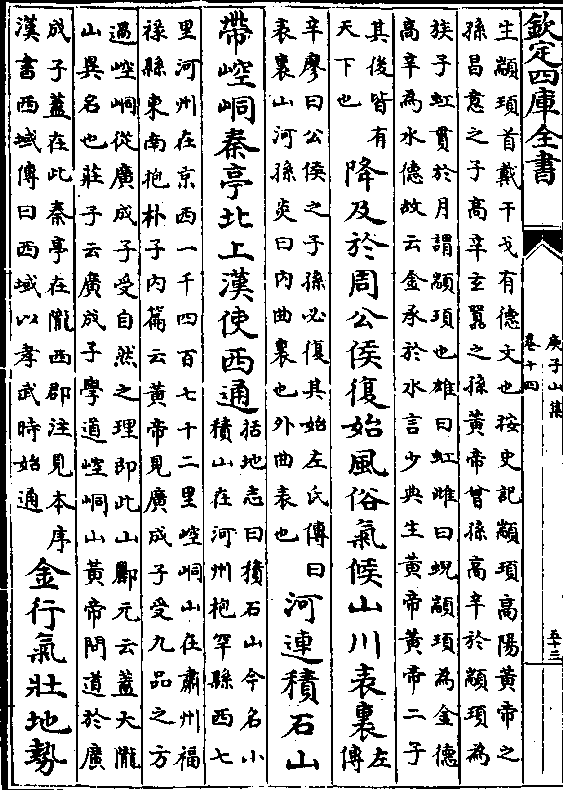 欽定四庫全書
庾子山集
卷十四
五十三
生顓頊首戴干戈有德文也按史記顓頊高陽黃帝之
孫昌意之子高辛玄囂之孫黃帝曾孫高辛於顓頊為
族子虹貫於月謂顓頊也雄曰虹雌曰蜺顓頊為金德
高辛為水德故云金承於水言少典生黃帝黃帝二子
其後皆有
天下也
降及於周公侯復始風俗氣候山川表裏
左
傳
辛廖曰公侯之子孫必復其始左氏傳曰
表裏山河孫炎曰內曲裏也外曲表也
河連積石山
帶崆峒秦亭北上漢使西通
括地志曰積石山今名小
積山在河州枹罕縣西七
里河州在京西一千四百七十二里崆峒山在肅州福
祿縣東南抱朴子內篇云黃帝見廣成子受九品之方
過崆峒從廣成子受自然之理即此山酈元云蓋大隴
山異名也莊子云廣成子學道崆峒山黃帝問道於廣
成子蓋在此秦亭在隴西郡注見本序
漢書西域傳曰西域以孝武時始通
金行氣壯地勢